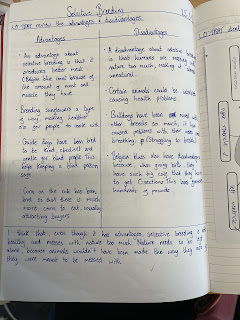 Selective Breeding
LO: TSBAT review the advantages & disadvantages
Advantages
· An advantage about
selective breeding is that it
produces better meat.
(Belgian blue cows) because of
the amount of meat and
muscle they have.
· Breeding sunflowers a type
of way, making healthier
oils for people to cook with
· Guide dogs have been bred
to be kind, resilient and
gentle for blind people. This
helps keeping a blind person
safe.
· Corn on the cob has been
bred so that there is much
more corn to eat, usually
attracting buyers.
Disadvantages
· A disadvantage about selective breeding
is that humans are messing with
nature too much, making it seem
unnatural.
· Certain animals could be interbred
causing health problems.
· Bulldogs have been mixed with
other breeds so much, it has
caused problems with their noses and
breathing. (Struggling to breathe)
· Belgian blues also have disadvantages
because, when giving birth, they
have such big calfs that they have
to get C-sections. This uses
hundreds of pounds.
I think that, even though it has advantages, selective breeding is not
healthy and messes with nature too much. Nature needs to be left
alone, because animals wouldn't have been made the way if
they were meant to be messed with.